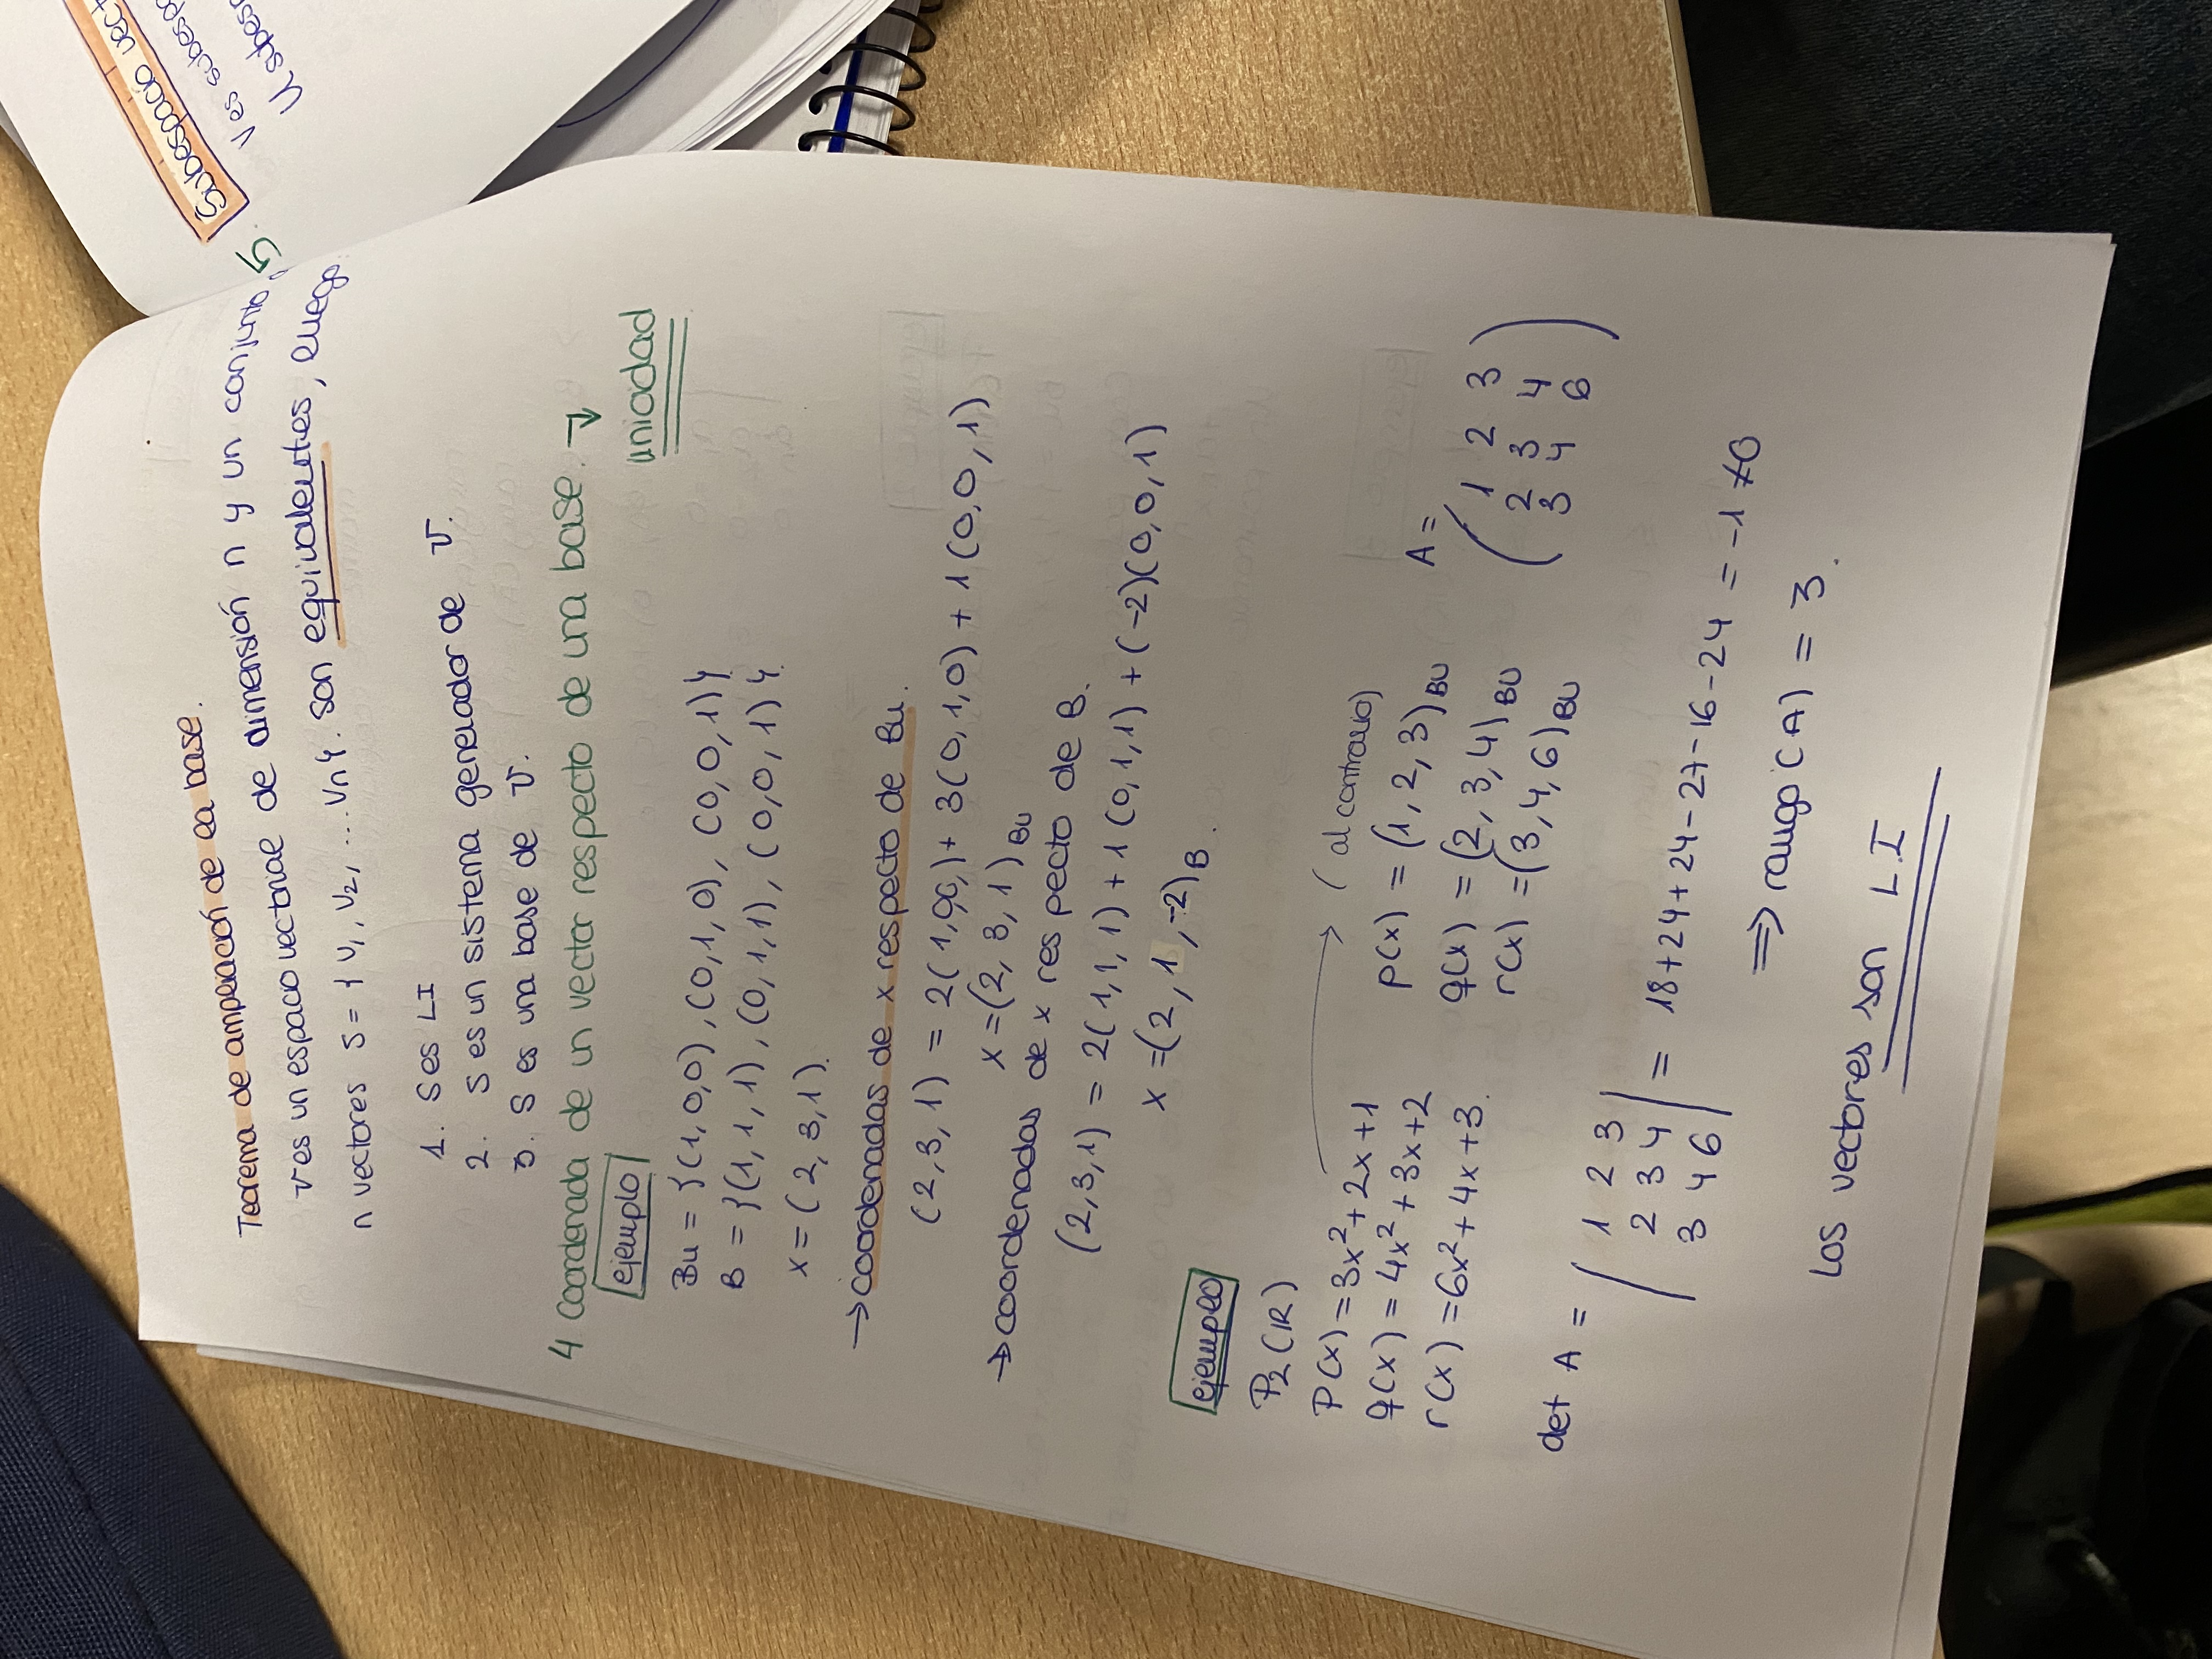 Teorema de ampliación de la base.
V es un espacio vectorial de dimensión n y un conjunto,
n vectores S = { V₁, V₂, ... Vn}. son equivalentes, luego
1. S es LI
2. S es un sistema generador de V.
3. S es una base de V.
4 Coordenada de un vector respecto de una base. ↓
ejemplo
uniodad
Bu = {(1,0,0), (0,1,0), (0,0,1)}
B = {(1,1,1), (0,1,1), (0,0,1)}.
x = (2,3,1).
→ coordenadas de x respecto de Bu.
(2,3,1) = 2(1,0,0,) + 3(0,1,0) + 1(0,0,1)
x = (2,3,1)BU
→ coordenadas de x respecto de B.
(2,3,1) = 2(1,1,1) + 1(0,1,1) + (-2)(0,0,1)
x = (2,1,-2)B.
ejemplo
P₂(IR)
P(x) = 3x² + 2x + 1 → (al contrario)
q(x) = 4x² + 3x + 2
r(x) = 6x² + 4x + 3.
p(x) = (1,2,3)BU
q(x) = (2,3,4)BU
r(x) = (3,4,6)BU
A =
1 2 3
2 3 4
3 4 6
det A =
1 2 3
2 3 4
3 4 6
= 18+24+24-27-16-24 = -1 ≠ 0
⇒ rango(A) = 3.
Los vectores son L.I
5. Subespacio vect
V es subesp
U subes